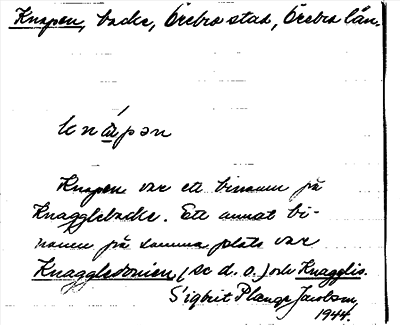 Knapen, backe, Örebro stad, Örebro län.
knápən
Knapen var ett binamn på
Knagglebacke. Ett annat bi-
namn på samma plats var
Knaggledonien (se d. o.) och Knagglis.
Sigbrit Plange Jacobson,
1944.